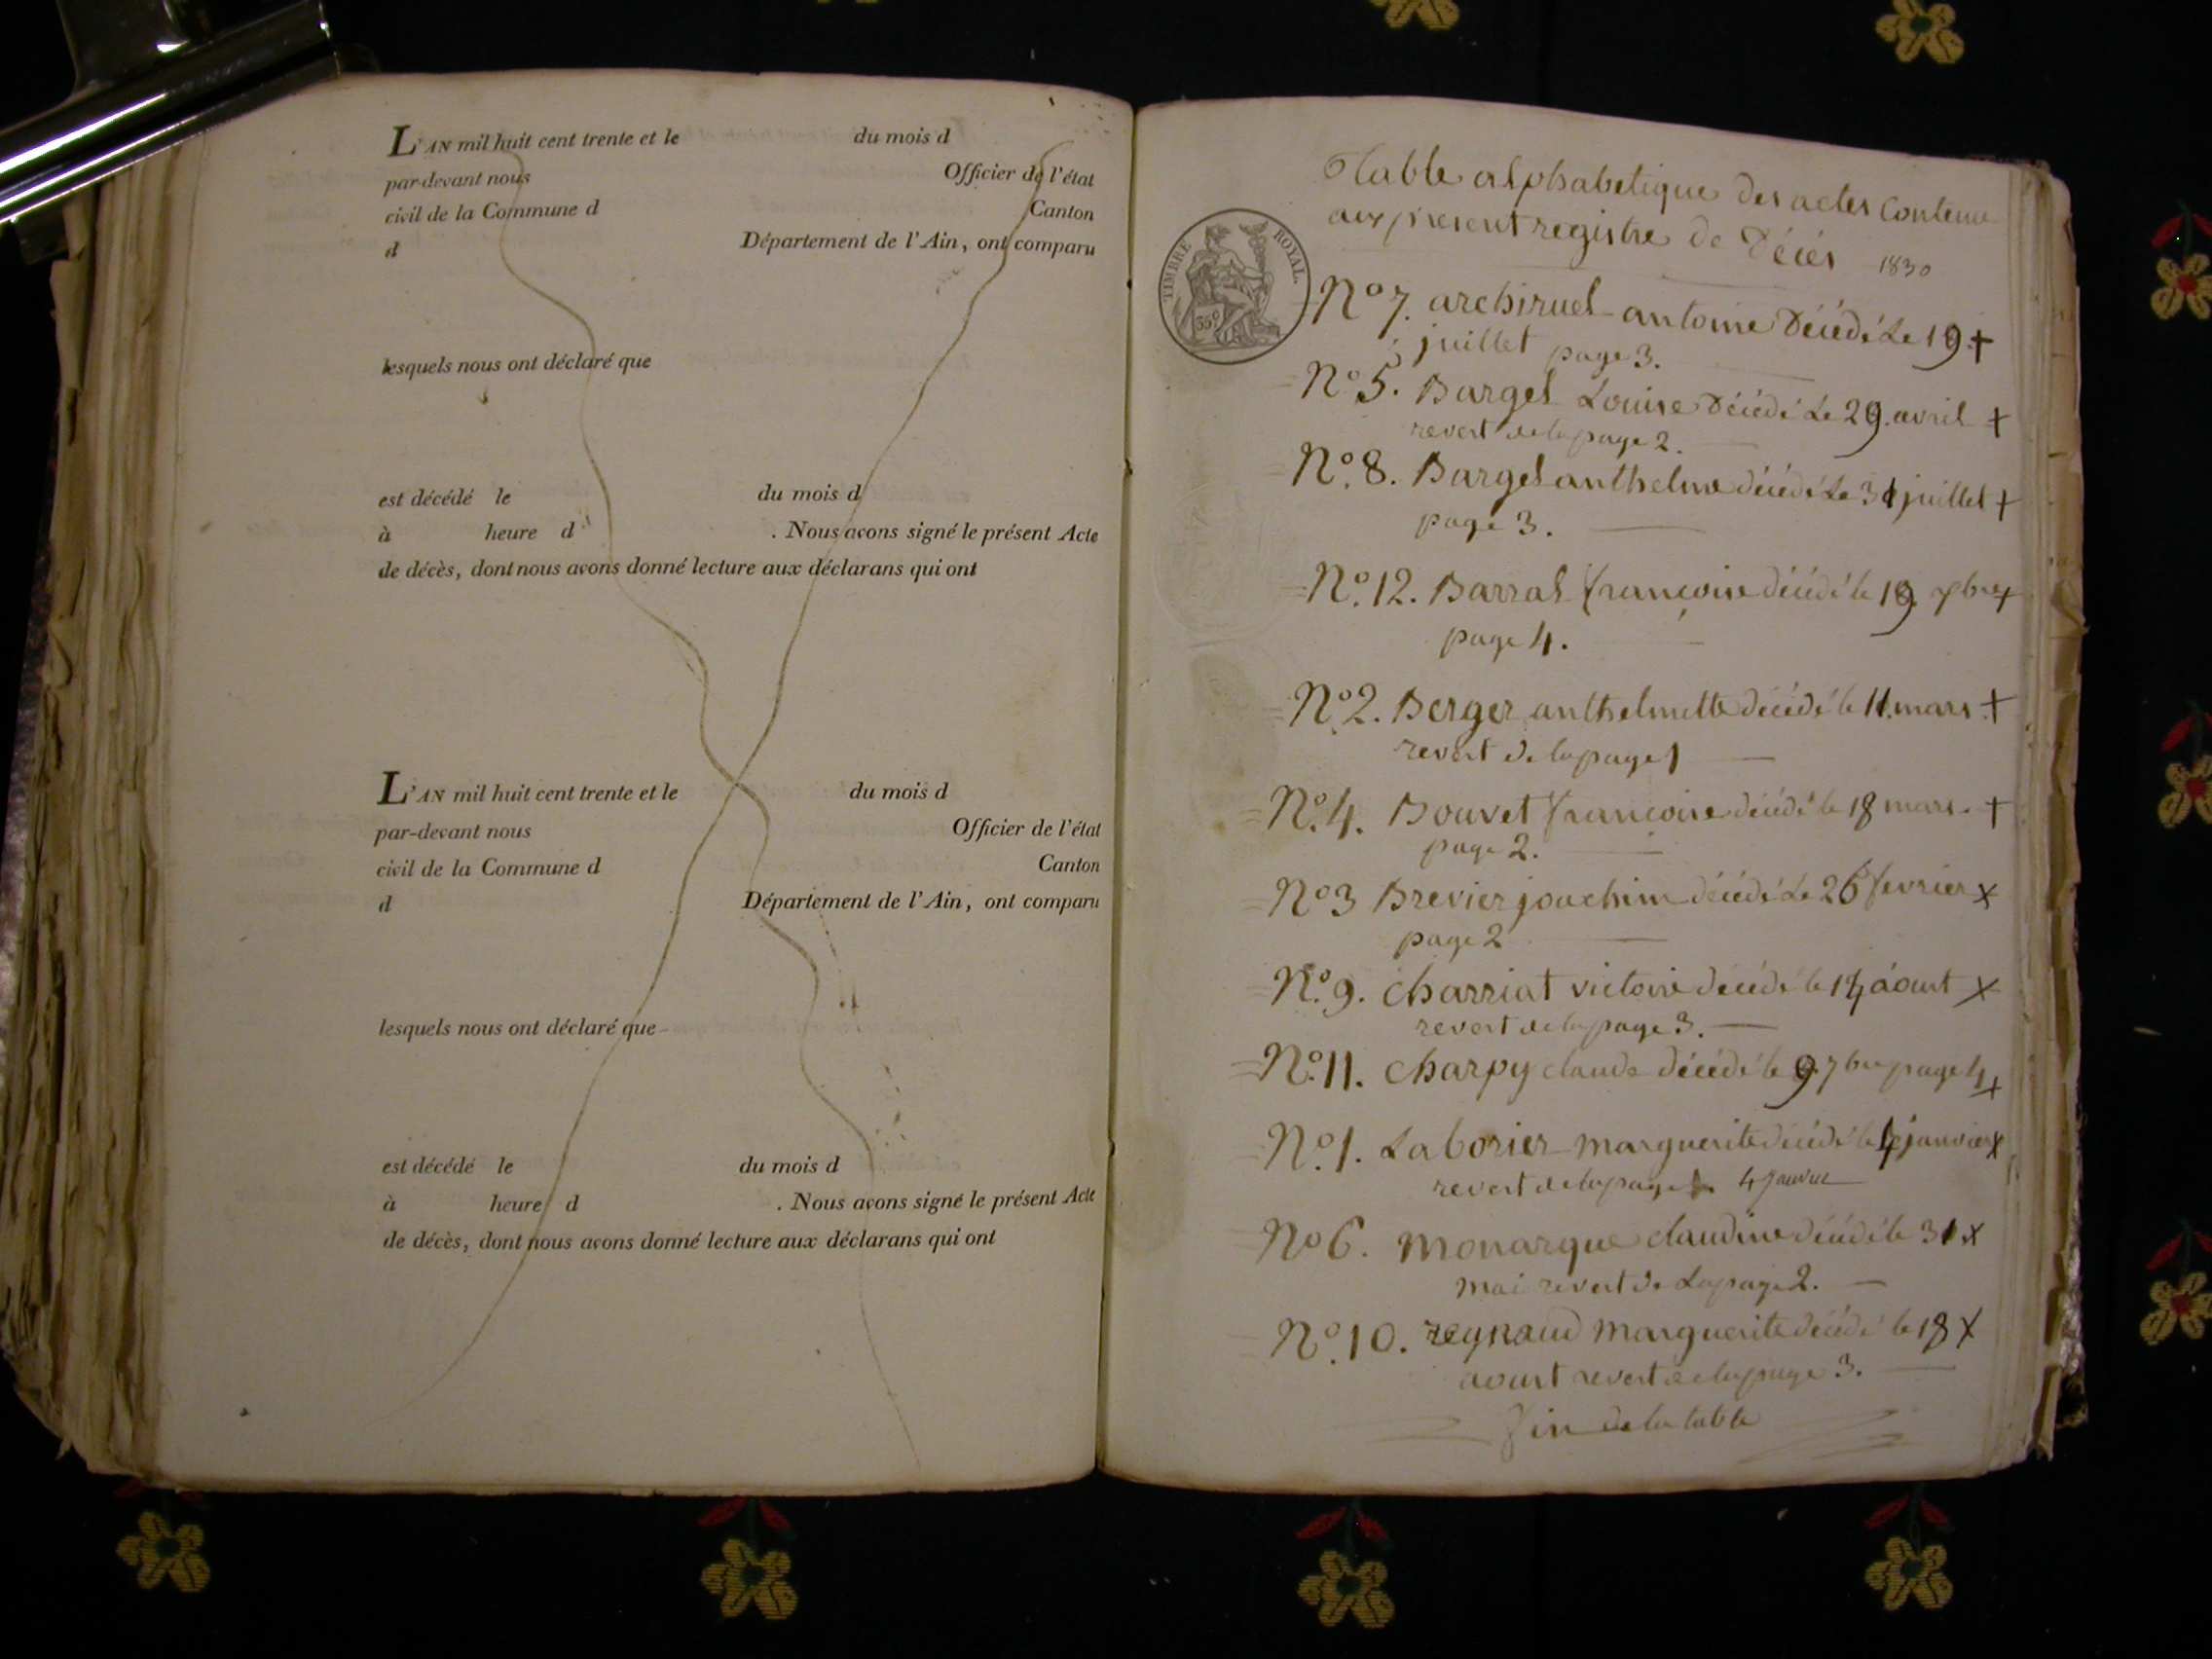 L'AN mil huit cent trente et le du mois d
par-devant nous Officier de l'état
civil de la Commune d Canton
d Département de l'Ain, ont comparu
lesquels nous ont déclaré que
est décédé le du mois d
à heure d . Nous avons signé le présent Acte
de décès, dont nous avons donné lecture aux déclarans qui ont
L'AN mil huit cent trente et le du mois d
par-devant nous Officier de l'état
civil de la Commune d Canton
d Département de l'Ain, ont comparu
lesquels nous ont déclaré que
est décédé le du mois d
à heure d . Nous avons signé le présent Acte
de décès, dont nous avons donné lecture aux déclarans qui ont
Table alphabetique des actes contenu
au present registre de Décés 1830
TIMBRE ROYAL
35c
N° 7. archiruel antoine décédé Le 19 +
juillet page 3.
N° 5. Bargel Louise décédé Le 29. avril +
revert de la page 2.
N° 8. Bargel anthelme décédé Le 31 juillet +
page 3.
N° 12. Barral françoise décédé le 19 7bre +
page 4.
N° 2. Berger anthelmette décédé le 11. mars +
revert de la page 1
N° 4. Bouvet françoise décédé le 18 mars. +
page 2.
N° 3 Brevier joachim décédé Le 26 fevrier x
page 2
N° 9. charriat victoire décédé le 14 aoust x
revert de la page 3.
N° 11. charpy claude décédé le 9 7bre page 4 +
N° 1. Laborier marguerite décédé le 4 janvier x
revert de la page 1. 4 Janvier
N° 6. monarque claudine décédé le 31 x
mai revert de La page 2.
N° 10. reynaud marguerite décédé le 18 x
aoust revert de la page 3.
fin de la table